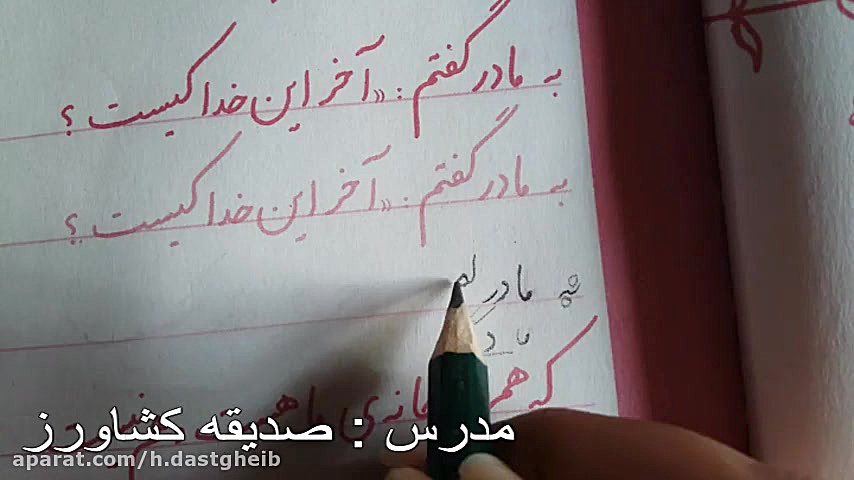 به مادر گفتم : «آخر این خدا کیست ؟
به مادر گفتم : «آخر این خدا کیست ؟
به مادر
ما د
که هم
مدرس : صدیقه کشاورز
aparat.com/h.dastgheib